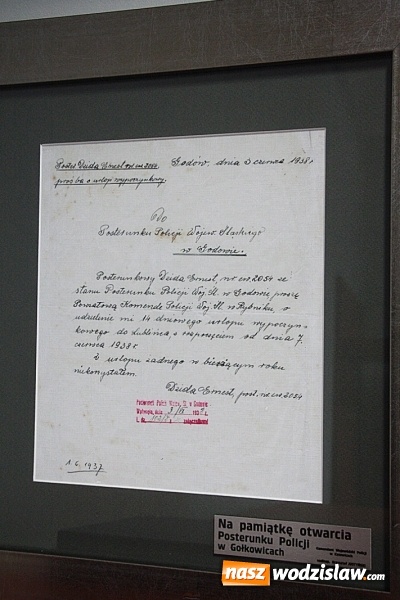 Poster. Duda Ernest nr. ew. 2054 Godów, dnia 3 czerwca 1938 r
prośba o urlop wypoczynkowy.
Do
Posterunku Policji Wojew. Śląskiego
w Godowie.
Posterunkowy Duda Ernest, nr. ew. 2054 ze
stanu Posterunku Policji Woj. Śl. w Godowie proszę
Powiatową Komendę Policji Woj. Śl. w Rybniku, o
udzielenie mi 14 dniowego urlopu wypoczyn-
kowego do Lublińca, z rozpoczęciem od dnia 7.
czerwca 1938 r.
Z urlopu żadnego w bieżącym roku
niekorzystałem.
Duda Ernest, post. nr. ew. 2054
Posterunek Policji Wojew. Śl. w Godowie
Wpłynęło, dnia 3/VI 193 r.
L. dz. załącznikami
1.6.1937
Na pamiątkę otwarcia
Posterunku Policji
w Gołkowicach
naszwodzislaw.com